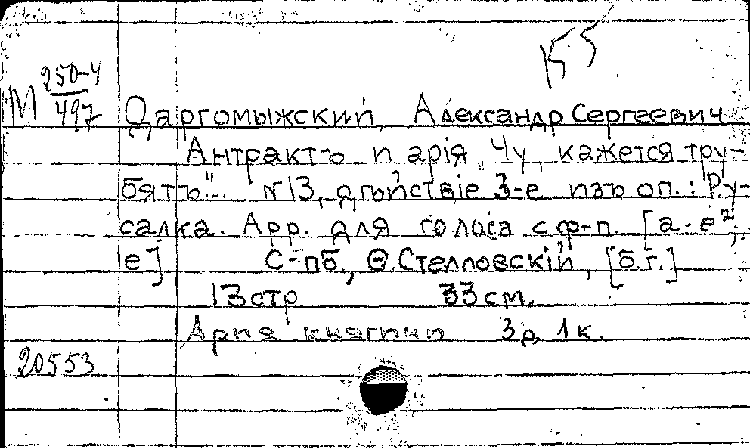 155
М 250-4
497
Даргомыжский, Александр Сергеевич
Антрактъ и арія „Чу, кажется тру-
бятъ". №13, дѣйствіе 3-е изъ оп.: Ру-
салка. Арр. для голоса с ф-п. [a-e²;
e] С-пб., Ѳ. Стелловскій, [б.г.]
13 стр 33 см.
Ария княгини 3 р, 1 к.
20553